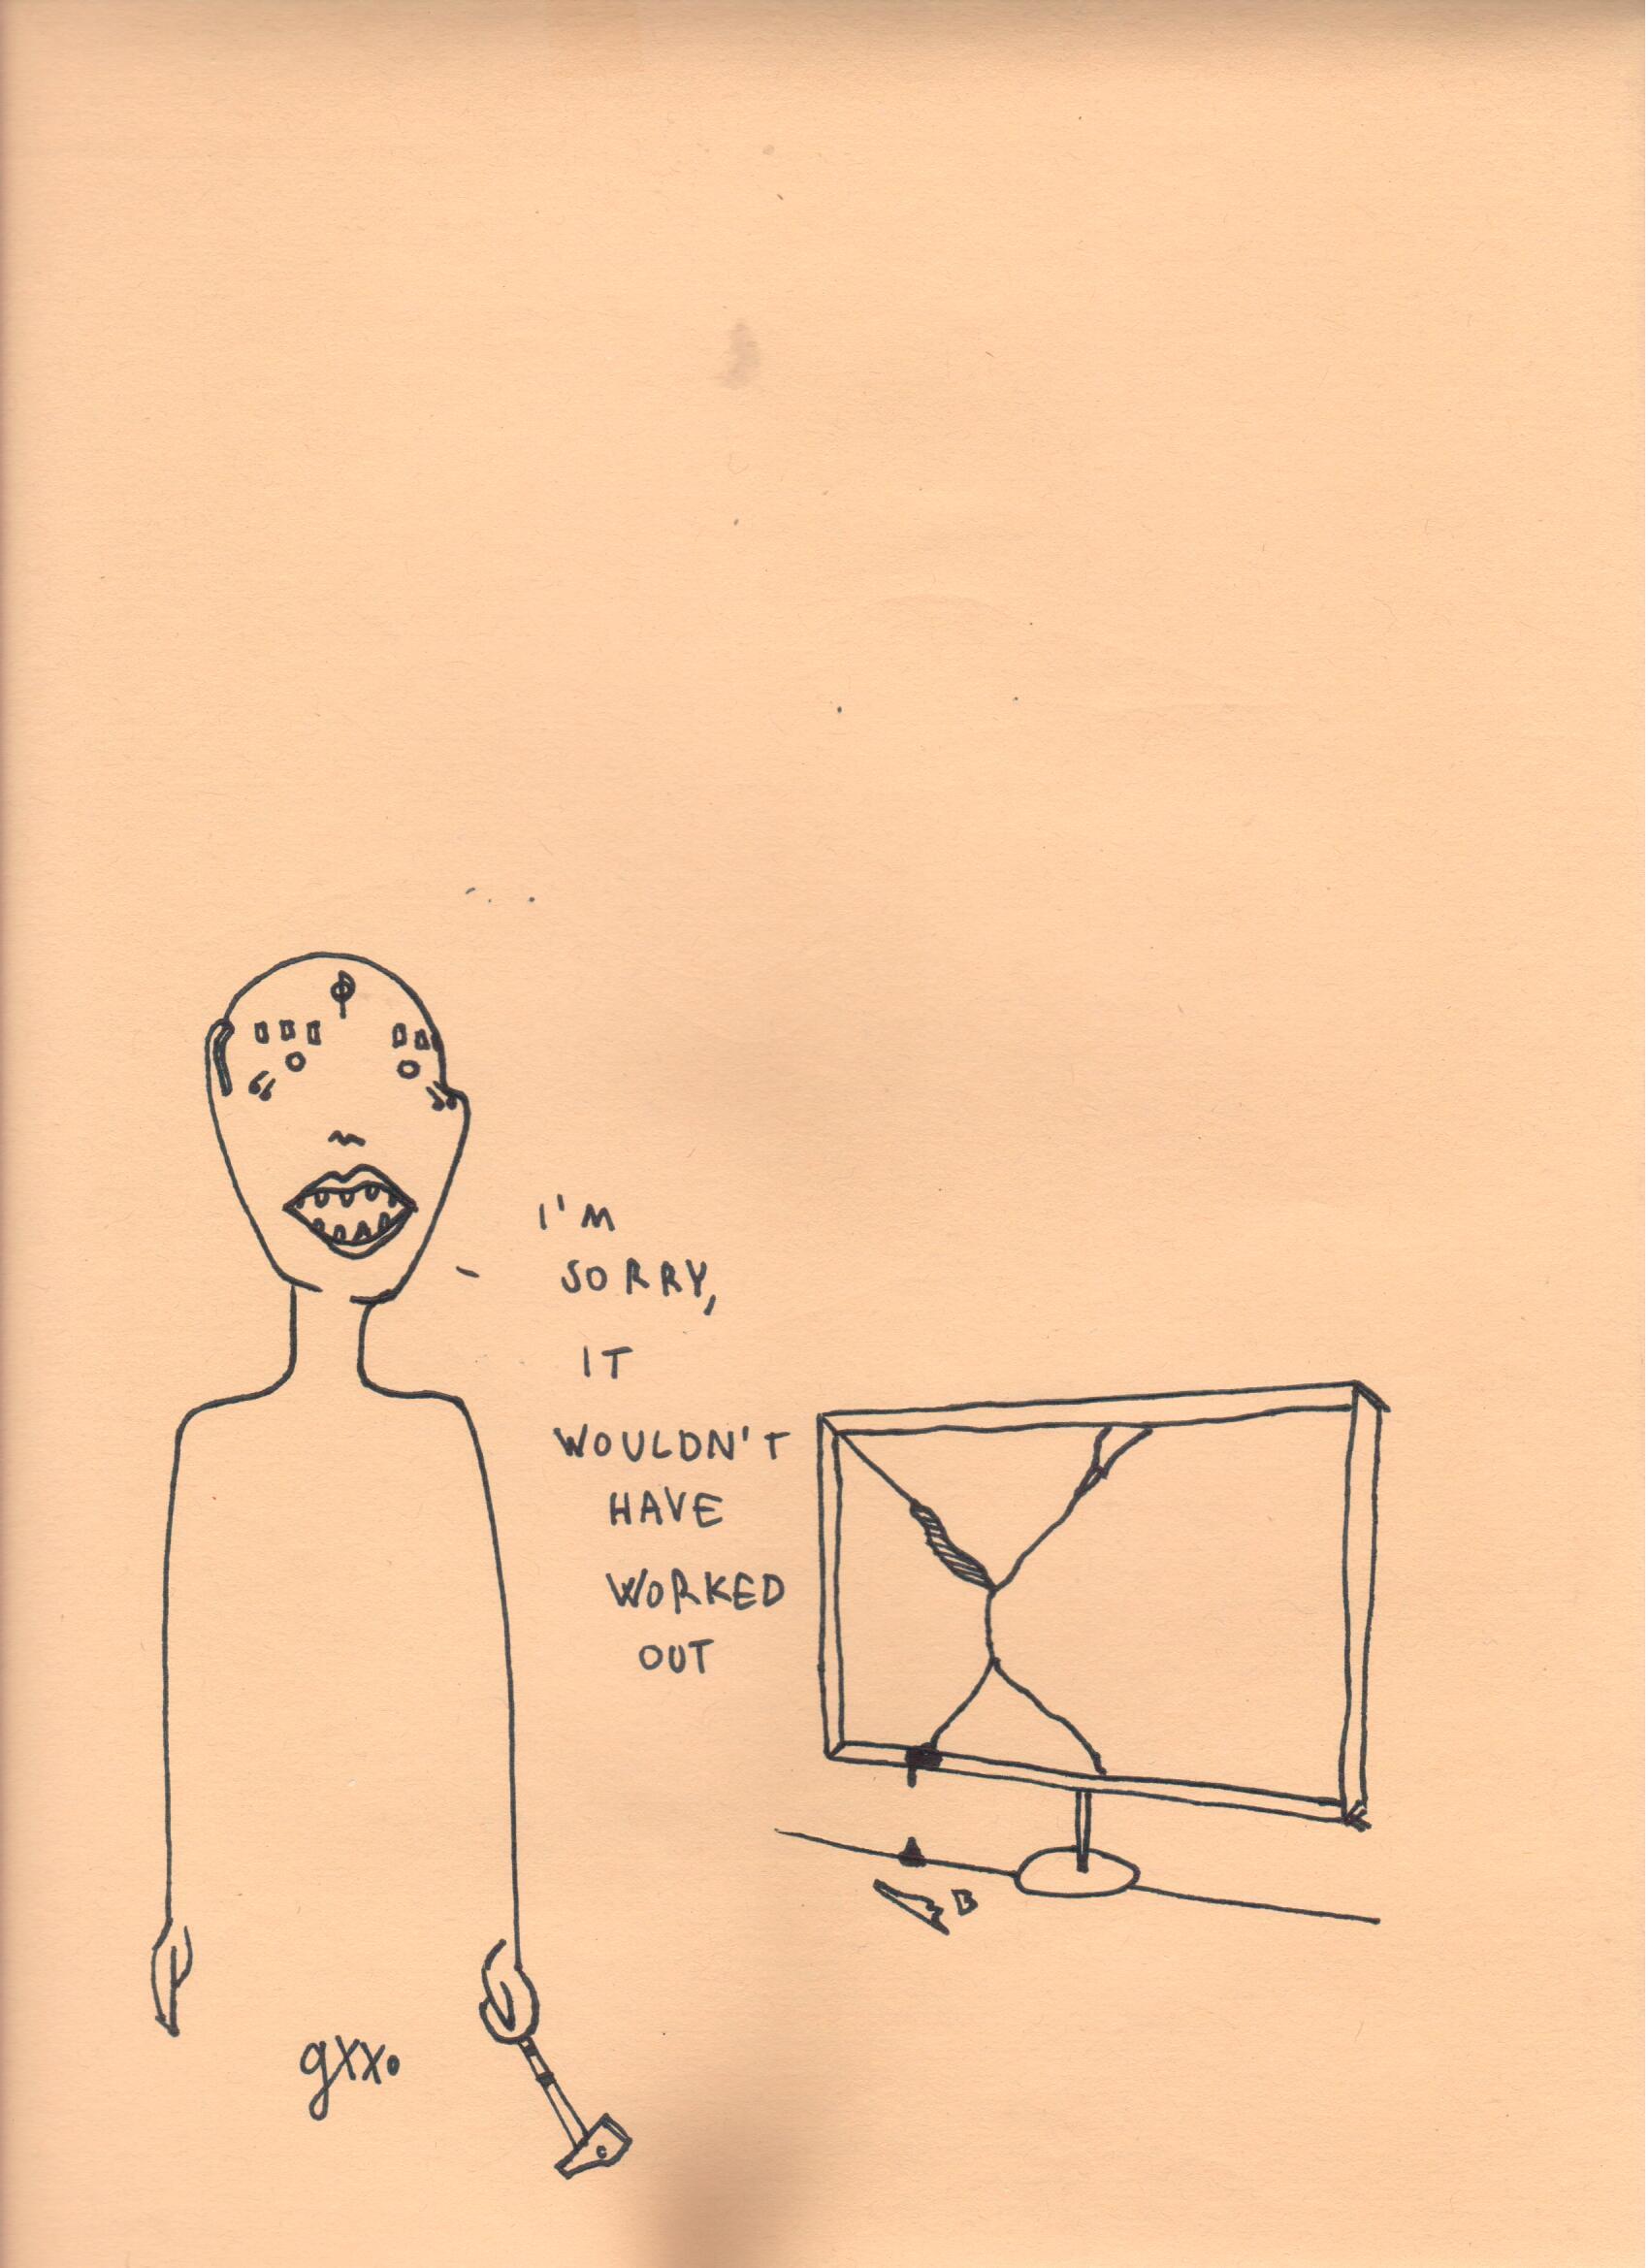 I'M
SORRY,
IT
WOULDN'T
HAVE
WORKED
OUT
gxxo